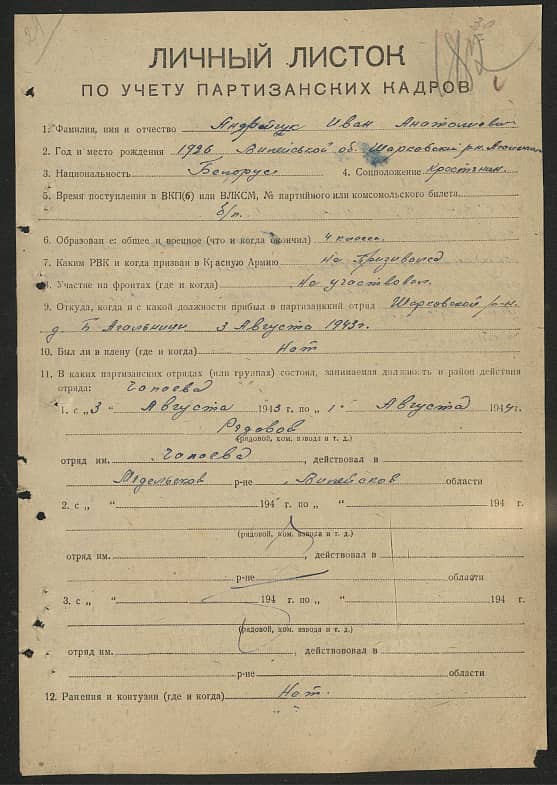 21
30
ЛИЧНЫЙ ЛИСТОК
ПО УЧЕТУ ПАРТИЗАНСКИХ КАДРОВ
1. Фамилия, имя и отчество Андрейчук Иван Анатолиевич
2. Год и место рождения 1926 Вилейськой об. Шарковский р-н.
3. Национальность Белорус 4. Соцположение крестьянин.
5. Время поступления в ВКП(б) или ВЛКСМ, № партийного или комсомольского билета
б/п.
6. Образование: общее и военное (что и когда окончил) 4 класса.
7. Каким РВК и когда призван в Красную Армию не призивался
8. Участие на фронтах (где и когда) не участвовал.
9. Откуда, когда и с какой должности прибыл в партизанский отряд Шарковской р-н.
д. Б. Агольници 3 Августа 1943 г.
10. Был ли в плену (где и когда) Нет
11. В каких партизанских отрядах (или группах) состоял, занимаемая должность и район действия
отряда: Чапаева
1. с „3 “ Августа 1943 г. по „1 “ Августа 1944 г.
Рядовой
(рядовой, ком. взвода и т. д.)
отряд им. Чапаева, действовал в
Мядельском р-не Вилейской области
2. с „ “ 194 г. по „ “ 194 г.
(рядовой, ком. взвода и т. д.)
отряд им. , действовал в
р-не области
3. с „ “ 194 г. по „ “ 194 г.
(рядовой, ком. взвода и т. д.)
отряд им. , действовал в
р-не области
12. Ранения и контузии (где и когда) Нет.